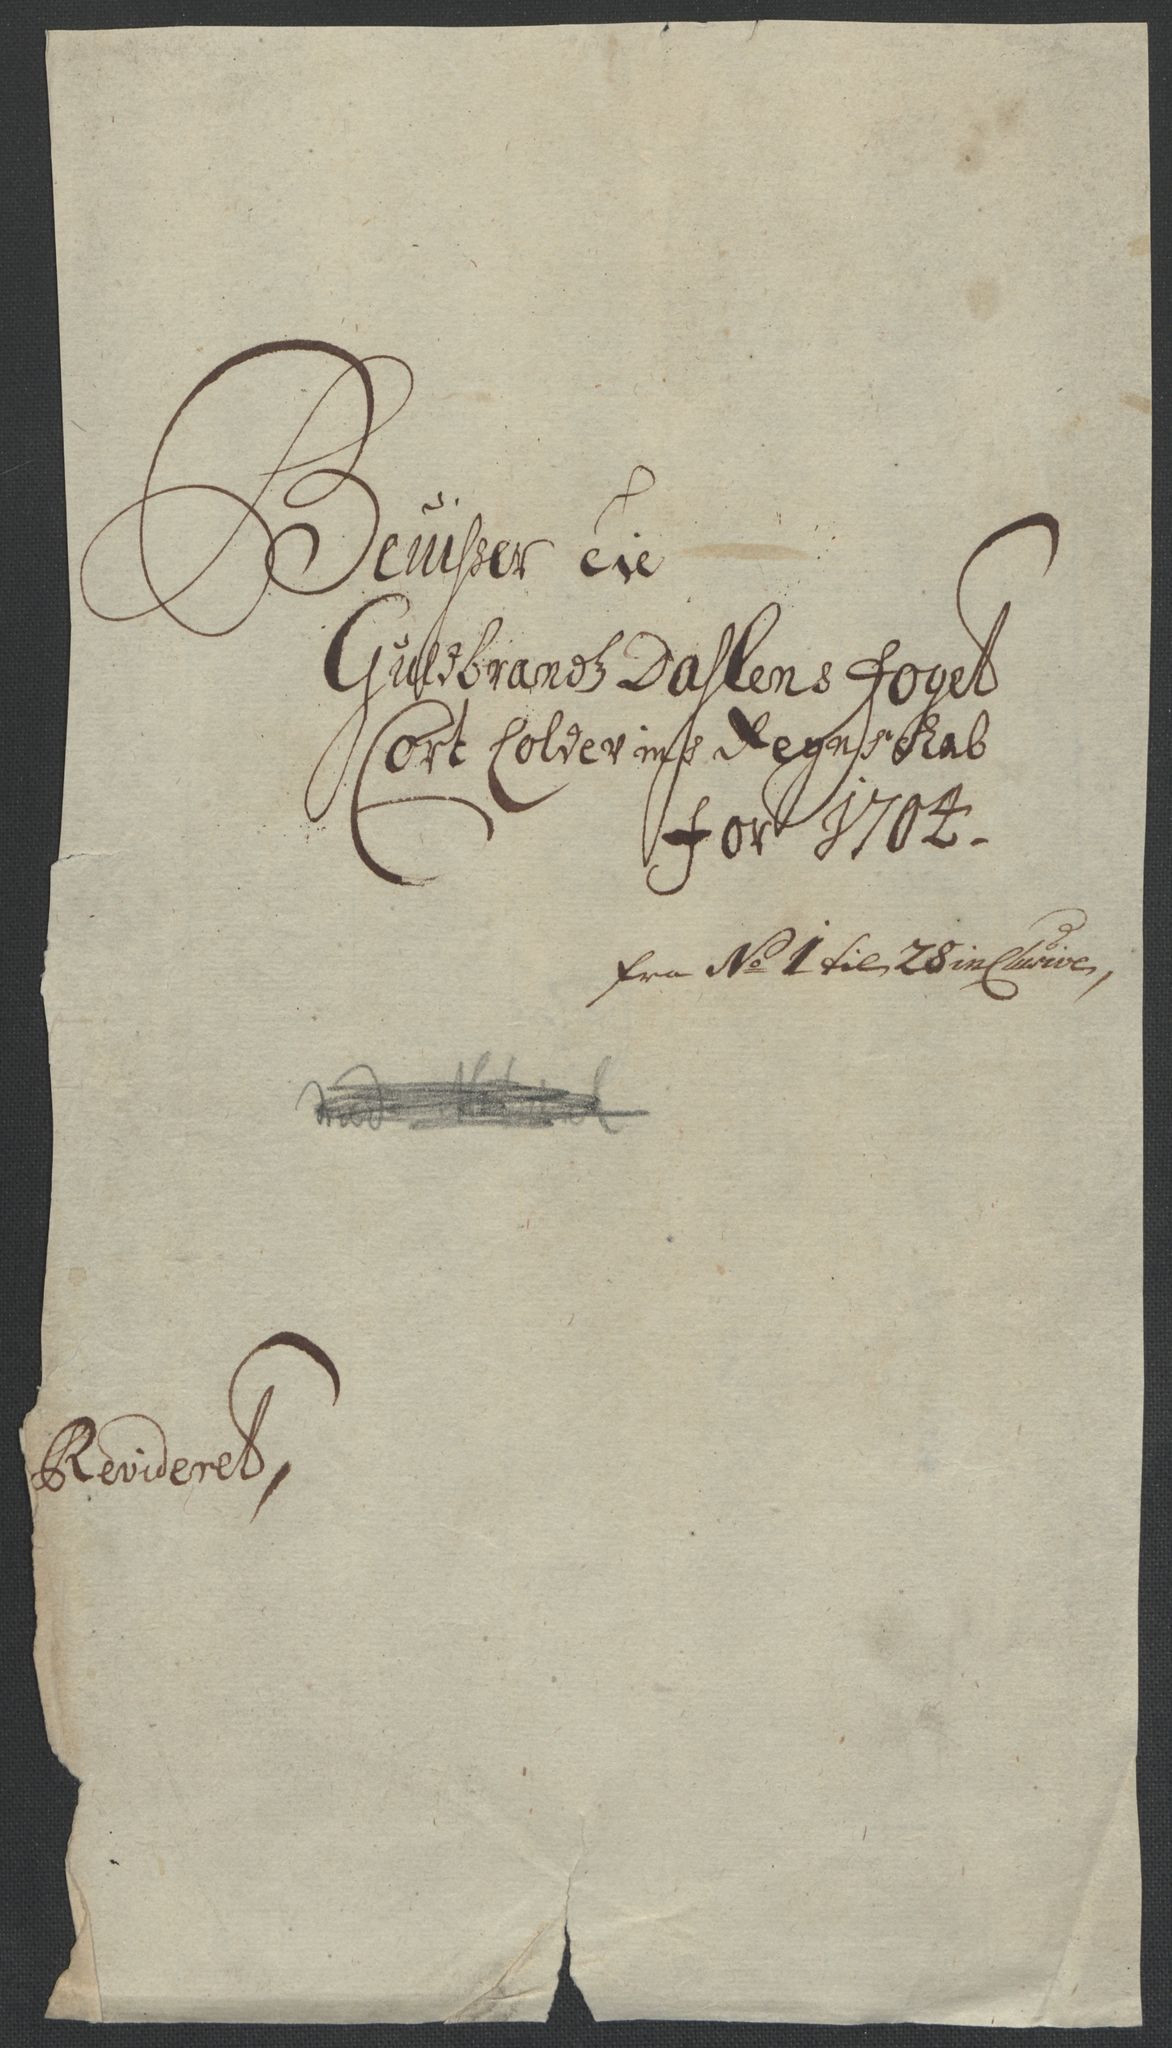 Beuiſzer til
Guldbrandtz Dahlens foget
Cort Colderings Regnskab
for 1704.
fra No 1 til 28 inclusive,
Revideret,